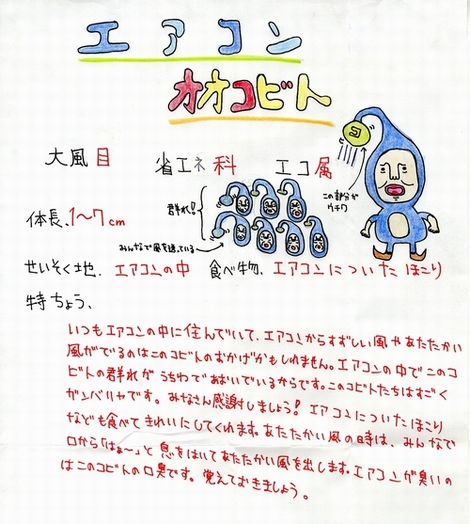 エアコン
オオコビト
大風目 省エネ科 エコ属
群れ!
エコ
この部分が
ウチワ
体長、1〜7cm
みんなで風を送っている
せいそく地、エアコンの中 食べ物、エアコンについたほこり
特ちょう、
いつもエアコンの中に住んでいて、エアコンからすずしい風やあたたかい
風がでるのはこのコビトのおかげかもしれません。エアコンの中でこのコ
ビトの群れがうちわであおいでいるからです。このコビトたちはすごく
ガンバリヤです。みなさん感謝しましょう!エアコンについたほこり
なども食べてきれいにしてくれます。あたたかい風の時は、みんなで
口から「はぁ〜」と息をはいてあたたかい風を出します。エアコンが臭いの
はこのコビトの口臭です。覚えておきましょう。